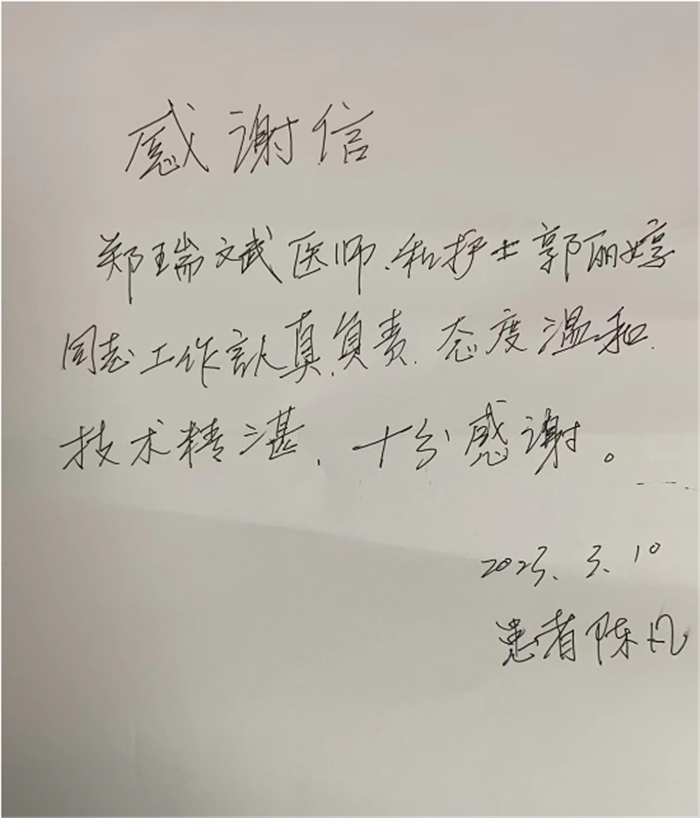 感谢信
郑瑞斌医师、和护士郭丽婷
同志工作認真、负责、态度温和、
技术精湛、十分感谢。
2023、3、10
患者陈凡